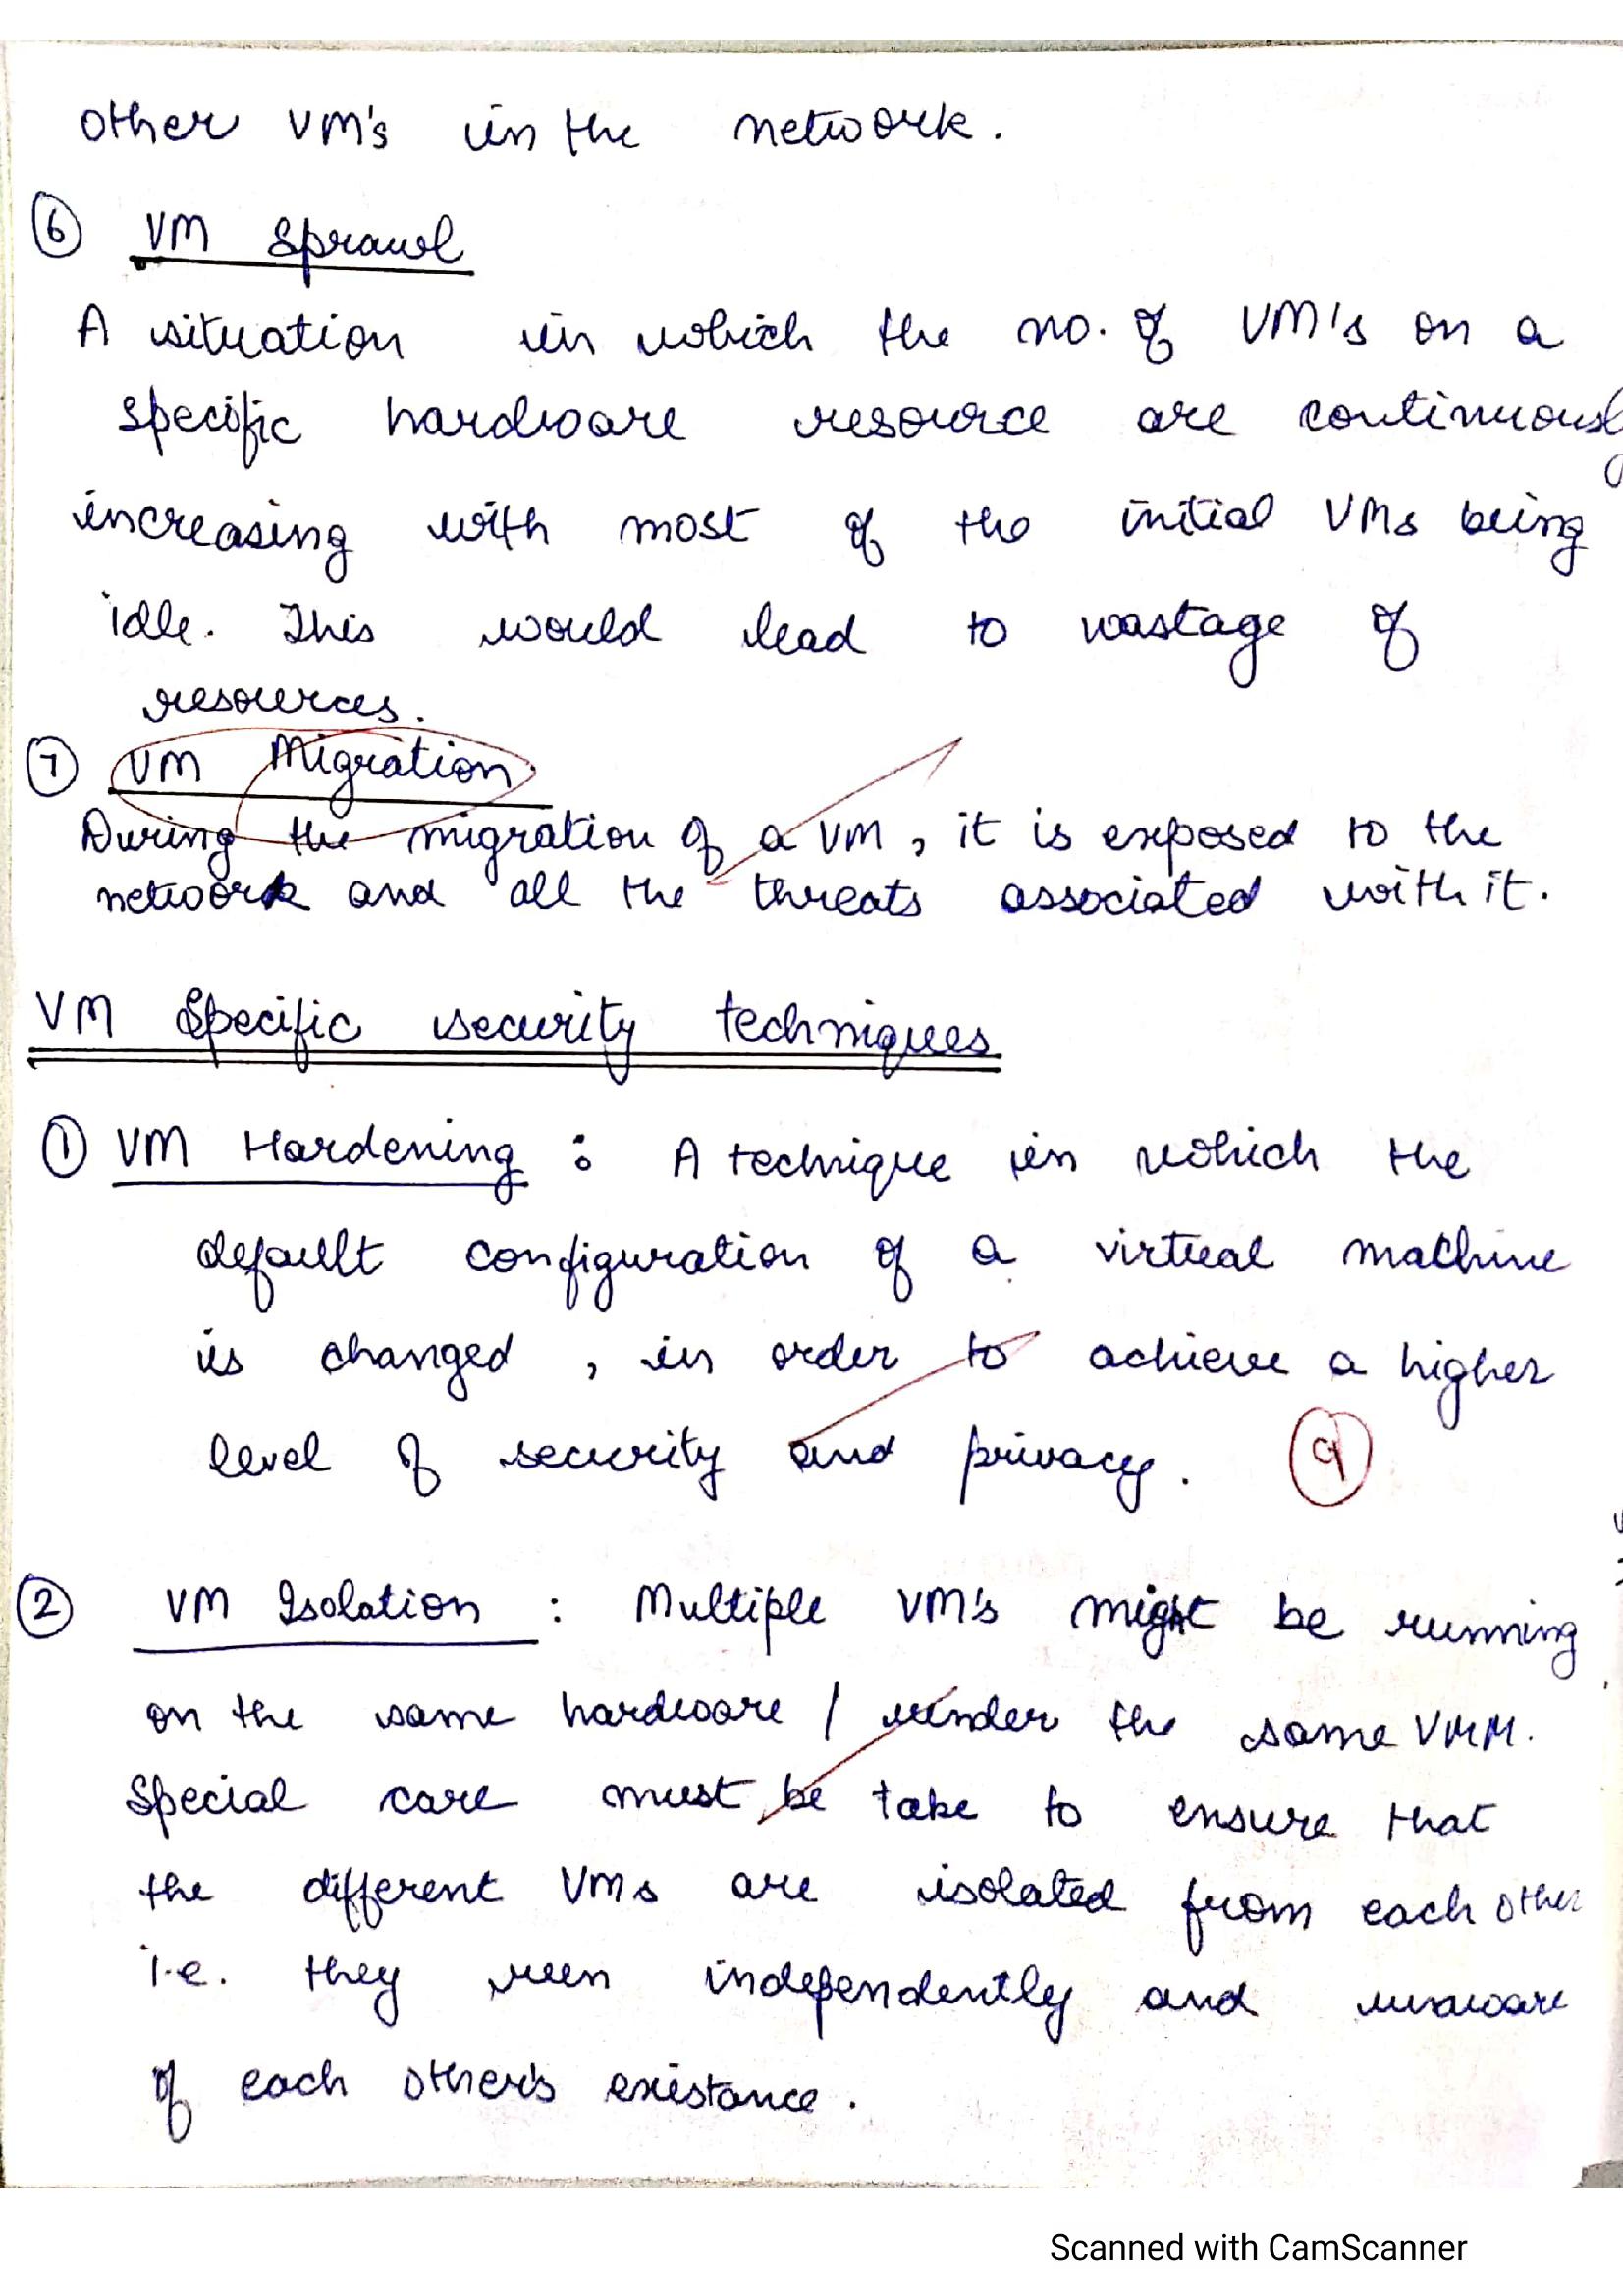 other VM's in the network.
⑥ VM Sprawl
A situation in which the no. of VM's on a
specific hardware resource are continuously
increasing with most of the initial VMs being
idle. This would lead to wastage of
resources.
⑦ VM Migration
During the migration of a VM, it is exposed to the
network and all the threats associated with it.
VM Specific security techniques
① VM Hardening : A technique in which the
default configuration of a virtual machine
is changed, in order to achieve a higher
level of security and privacy.
9
② VM Isolation : Multiple VM's might be running
on the same hardware / under the same VMM.
Special care must be take to ensure that
the different VMs are isolated from each other
i.e. they run independently and unaware
of each other's existance.
Scanned with CamScanner